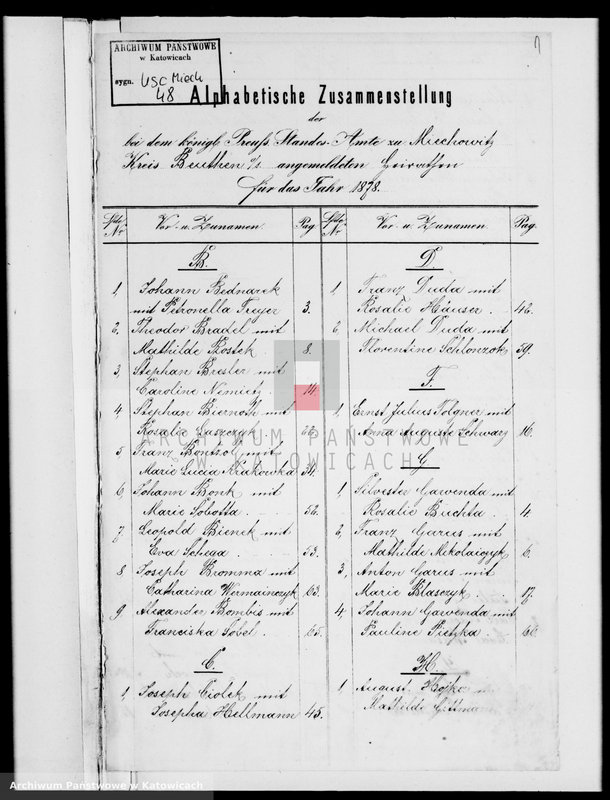 7
ARCHIWUM PAŃSTWOWE
w Katowicach
sygn. USC Miech
48
Alphabetische Zusammenstellung
der
bei dem königl. Preuß. Standes-Amte zu Miechowitz
Kreis Beuthen o/s angemeldeten Heirathen
für das Jahr 1878.
Lfde Nr Vor- u. Zunamen Pag.
B.
1, Johann Bednarek
mit Petronella Freyer 3.
2, Theodor Bradel mit
Mathilde Rostek 8.
3, Stephan Bresler mit
Caroline Nemietz 14.
4, Stephan Biernoth mit
Rosalie
5, Franz mit
Marie Lucia Krakowka
6, Johann Bonk mit
Marie Sobotta 52.
7, Leopold Bienek mit
Eva 53.
8, Joseph Bromma mit
Catharina 63.
9, Alexander Bombis mit
Franciska Sobel 65.
C.
1, Joseph Ciolek mit
Josepha Hellmann 45.
Lfde Nr. Vor- u. Zunamen Pag.
D.
1, Franz Duda mit
Rosalie Häuser 42.
2, Michael Duda mit
Florentine Schlonzok 59.
F.
1, Ernst Julius Folgner mit
Anna Auguste Schwarz 16.
G
1, Silvester Gawenda mit
Rosalie Buchta 4.
2, Franz Garus mit
Mathilde Mikolaiczyk 6.
3, Anton Garus mit
Marie Blasczyk 17.
4, Johann Gawenda mit
Pauline Pietzka
H.
1, August
Mathilde
ARCHIWUM PAŃSTWOWE
W KATOWICACH
Archiwum Państwowe w Katowicach